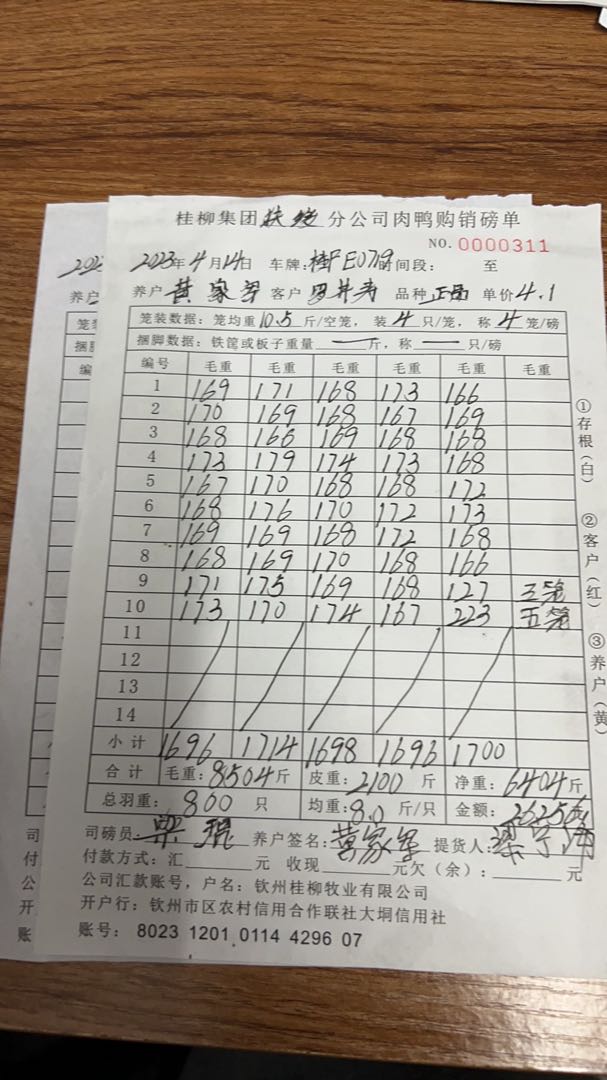 桂柳集团扶绥分公司肉鸭购销磅单
NO. 0000311
2023年4月14日 车牌:桂FE0719时间段: 至
养户 黄家军 客户 品种 正品 单价4.1
笼装数据: 笼均重10.5斤/空笼, 装4只/笼, 称4笼/磅
捆脚数据: 铁筐或板子重量 — 斤, 称 — 只/磅
编号 毛重 毛重 毛重 毛重 毛重 毛重
1 169 171 168 173 166
2 170 169 168 167 169
3 168 166 169 168 168
4 173 179 174 173 168
5 167 170 168 168 172
6 168 176 170 172 173
7 169 169 168 172 168
8 168 169 170 168 166
9 171 175 169 168 127 三笼
10 173 170 174 167 223 五笼
11
12
13
14
小计 1696 1714 1698 1696 1700
合计 毛重:8504斤 皮重:2100 斤 净重:6404斤
总羽重: 800 只 均重:8.0 斤/只 金额:26256.4
司磅员: 梁琨 养户签名: 黄家军 提货人:
付款方式: 汇 元 收现 元欠(余): 元
公司汇款账号, 户名: 钦州桂柳牧业有限公司
开户行: 钦州市区农村信用合作联社大垌信用社
账号: 8023 1201 0114 4296 07
①存根(白)
②客户(红)
③养户(黄)